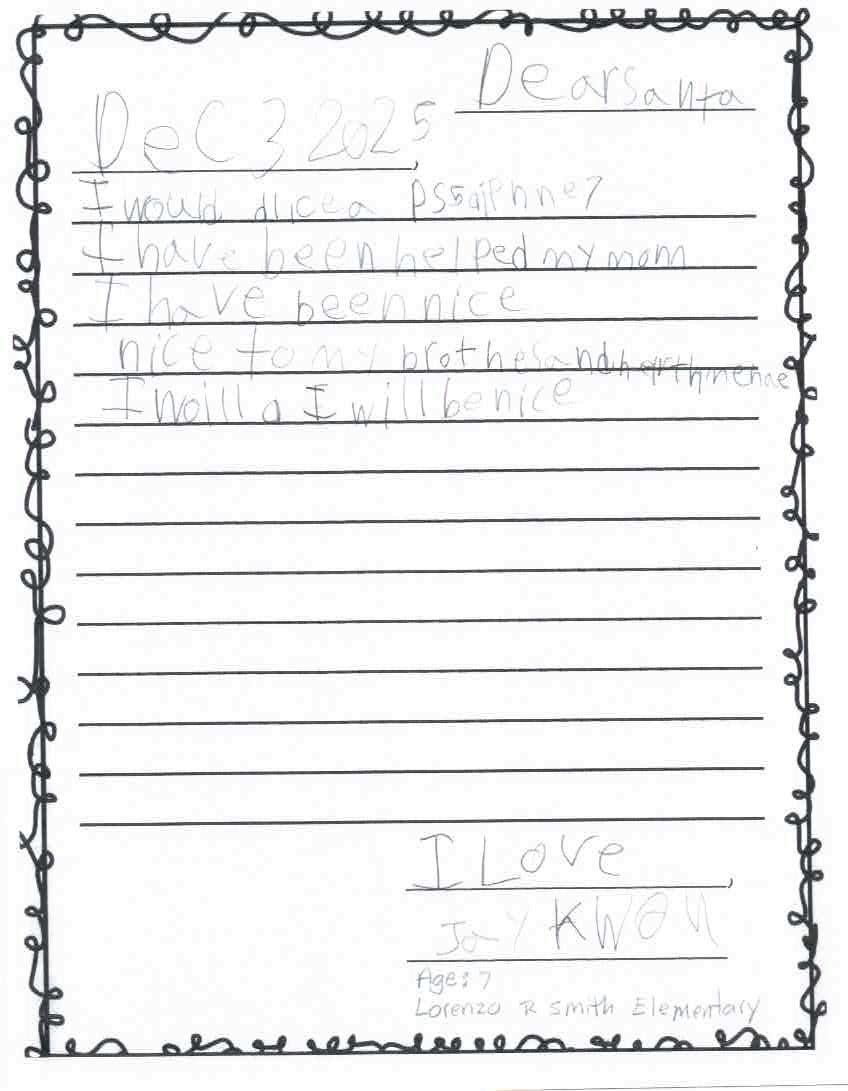 Dearsanta
Dec 3 2025,
I would dlicea ps5aiphne7
I have been helped my mom
I have beennice
nice to my brothesand
I woilld I will be nice
I Love,
Jay KWON
Age: 7
Lorenzo R Smith Elementary